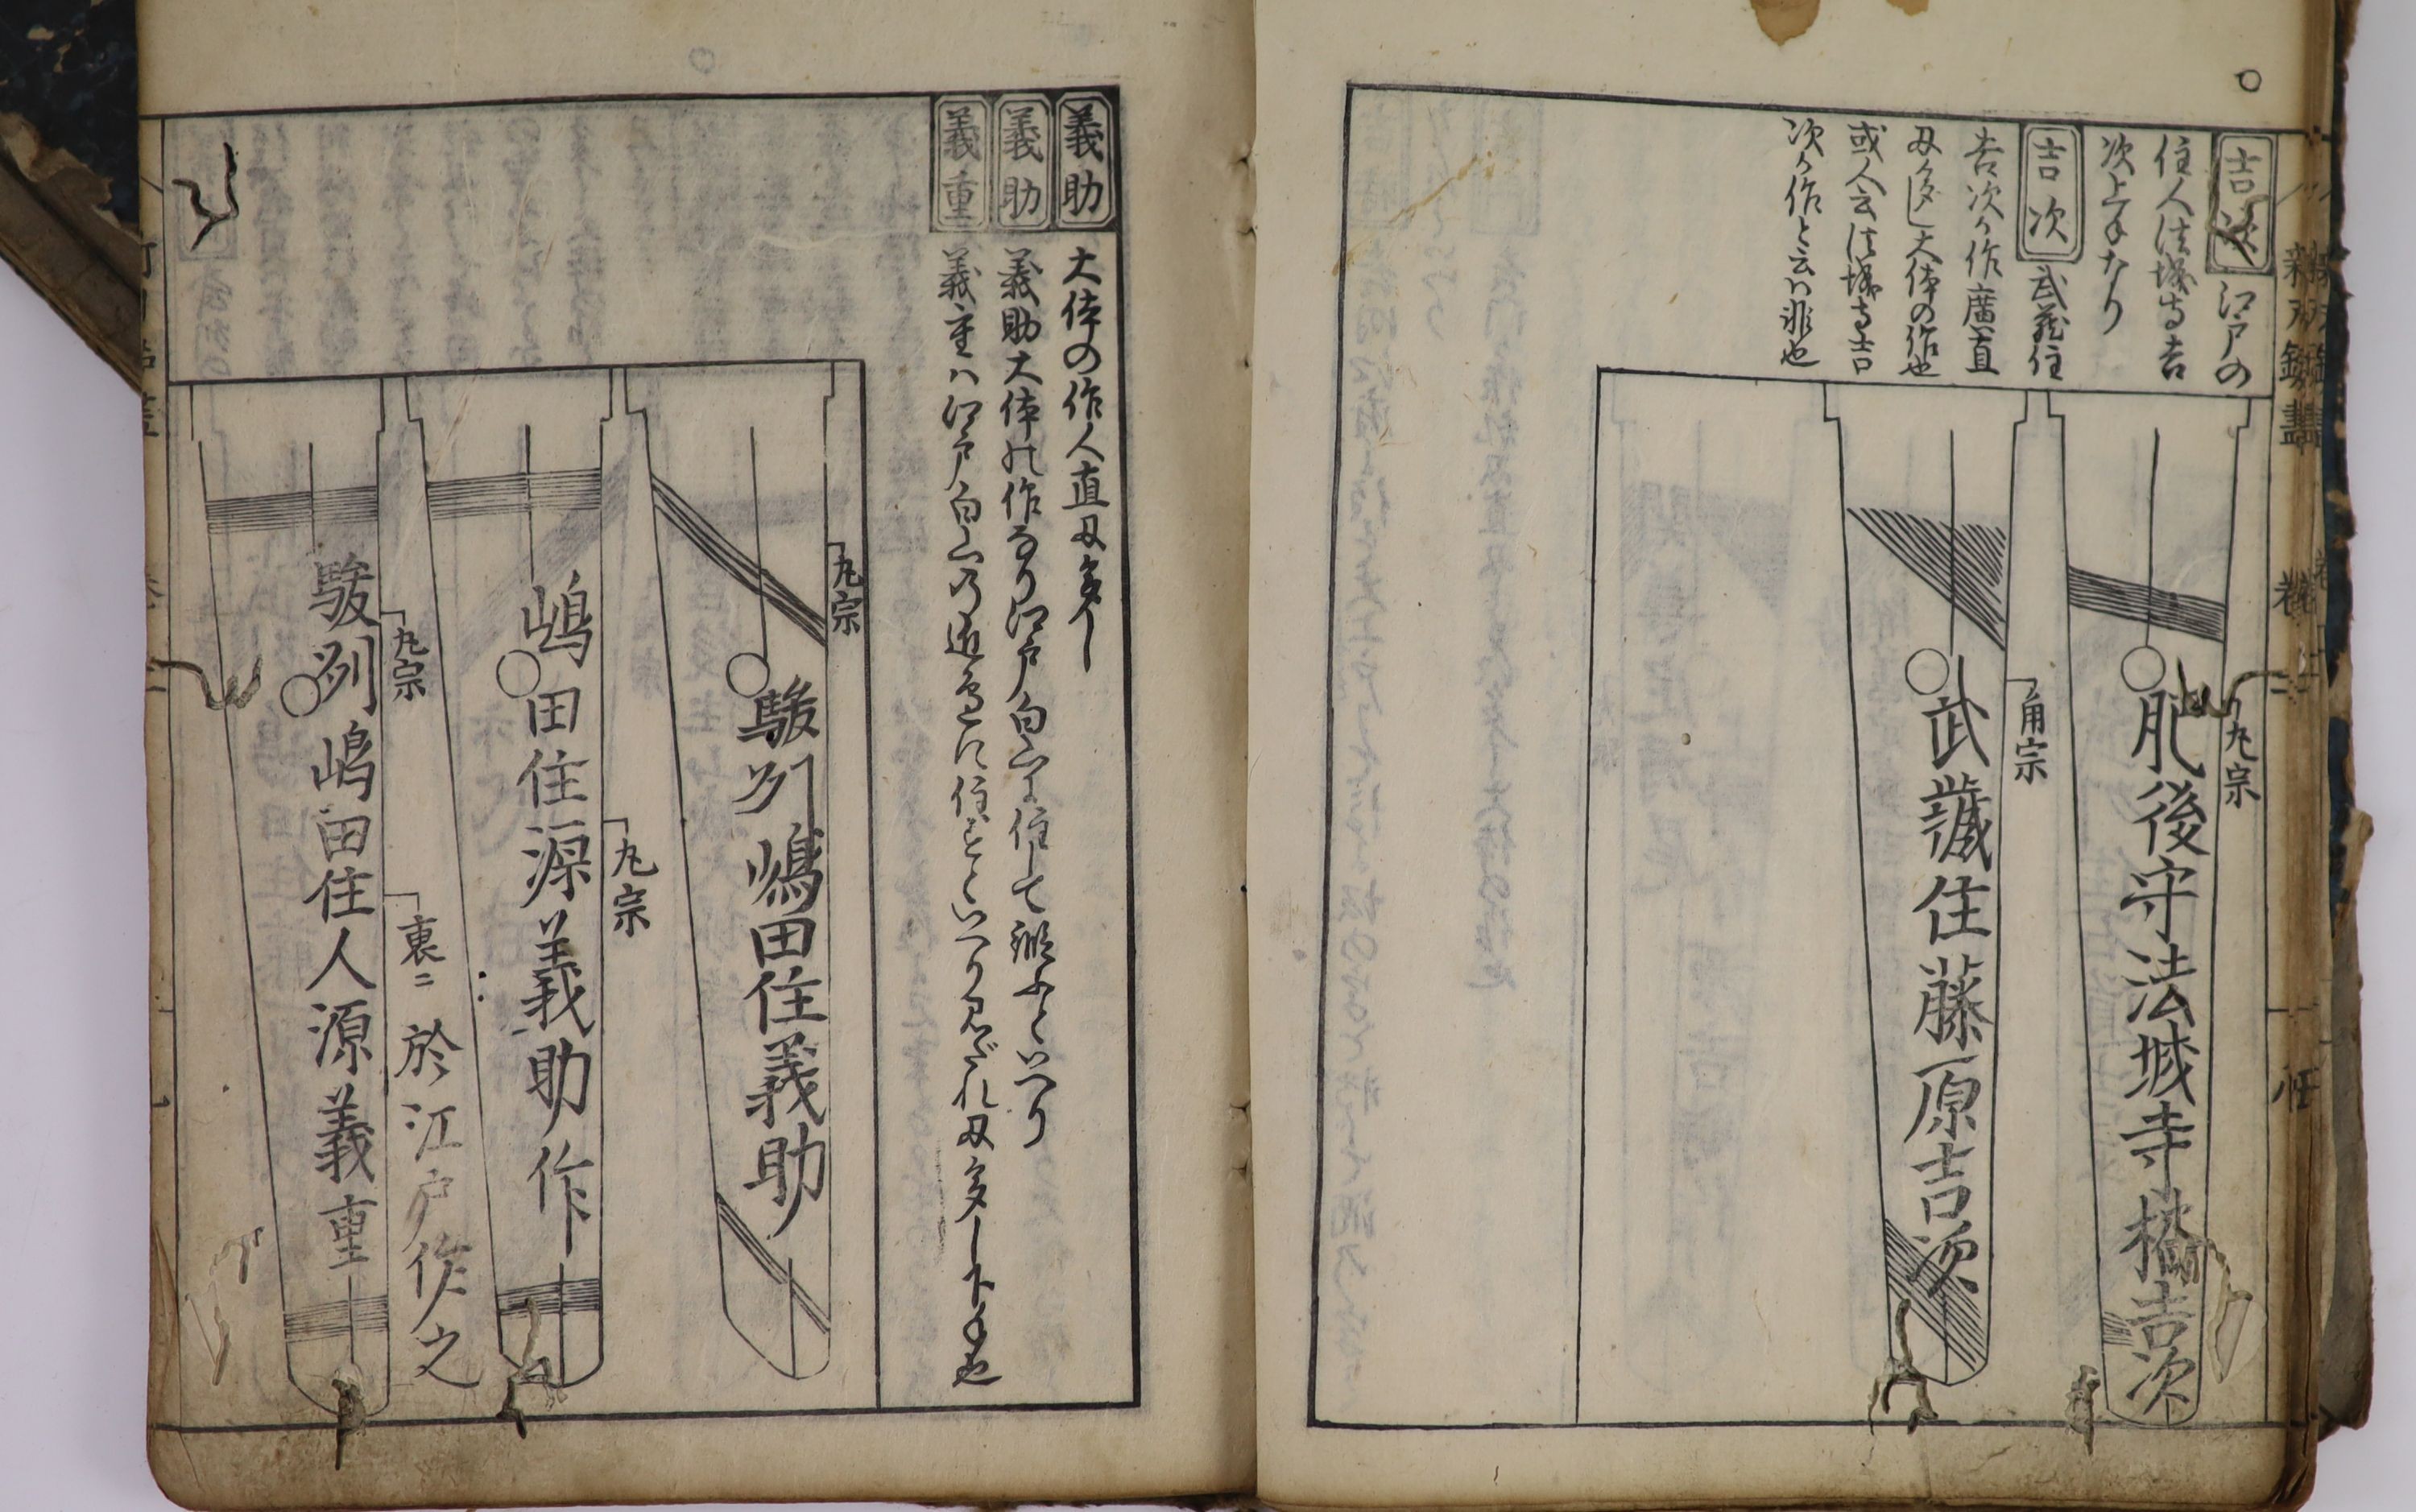 吉次 江戸の
住人法城寺吉
次上手なり
吉次 武蔵住
吉次が作廣直
刄多し大体の作也
或人云法城寺吉
次が作と云ハ非也
丸宗
肥後守法城寺橘吉次
角宗
武蔵住藤原吉次
義助 大体の作人直刄多し
義助 義助大体の作なり江戸白山に住して鍛ふといへり
義重 義重ハ江戸白山の近邉に住すといへり乱れ刄多し下手也
丸宗
駿州嶋田住義助
丸宗
嶋田住源義助作
丸宗
駿州嶋田住人源義重
裏ニ 於江戸作之